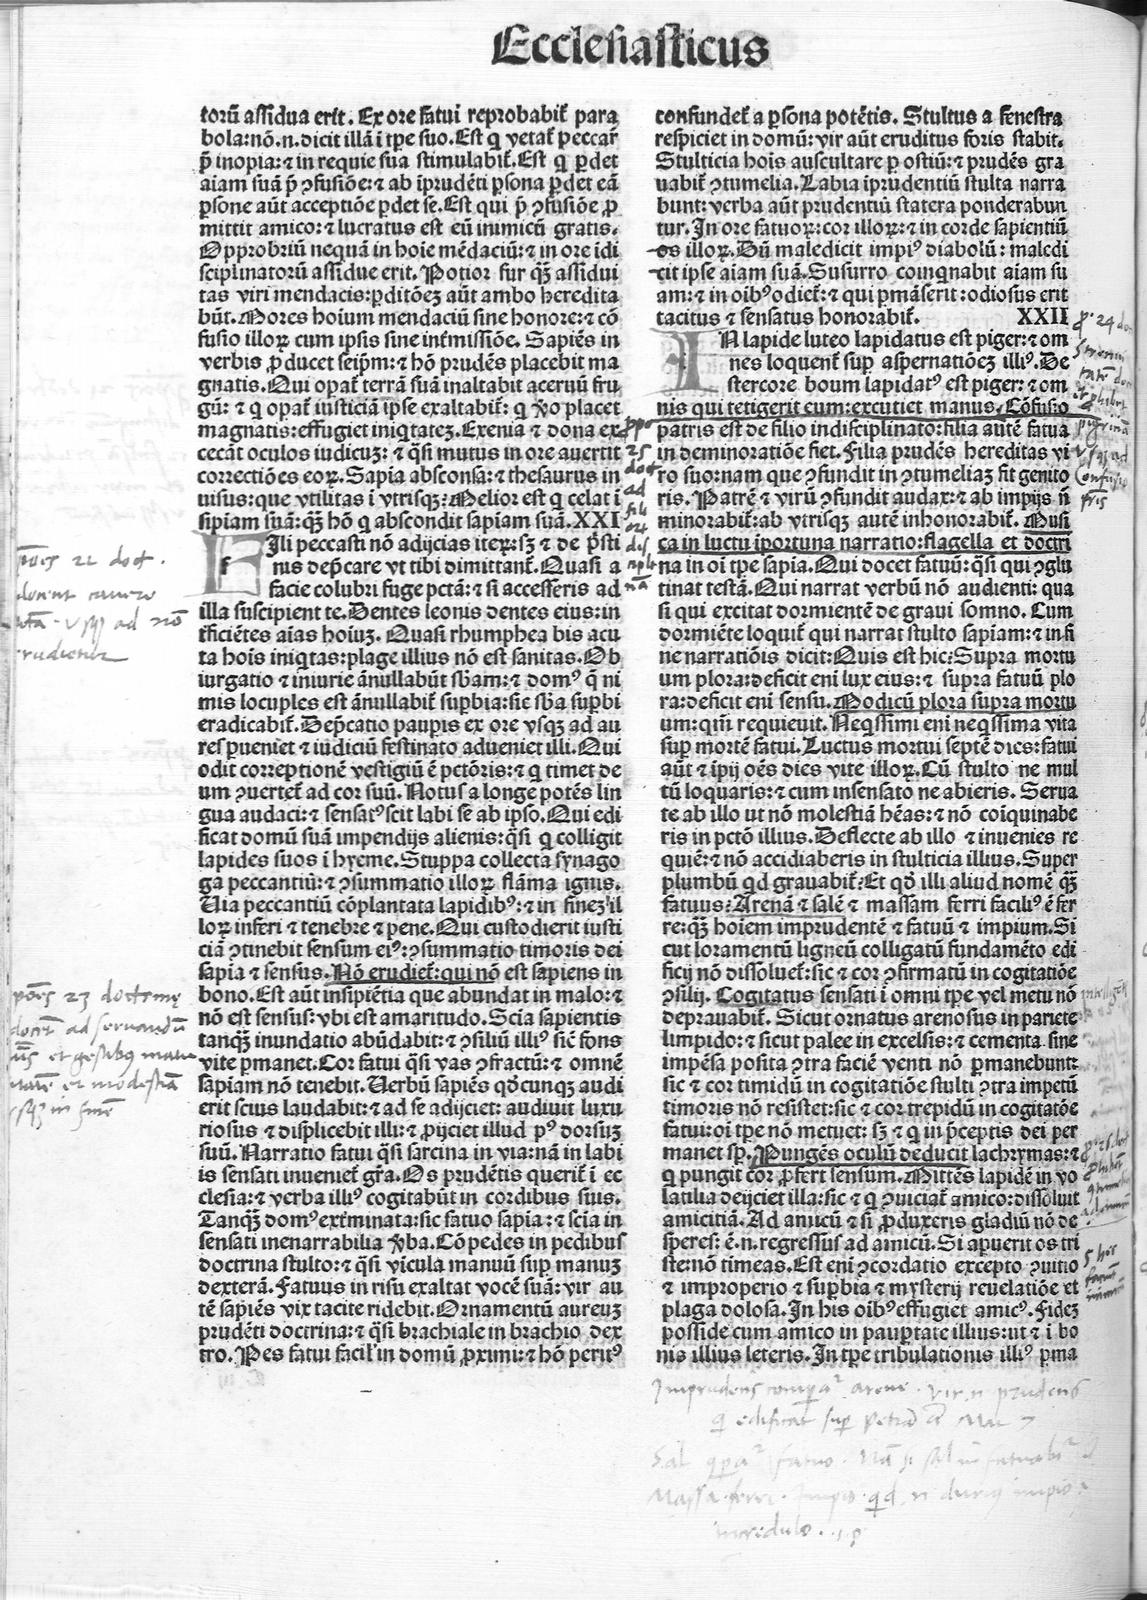 Ecclesiasticus
torū assidua erit. Ex ore fatui reprobabit̄ para
bola: nō .n. dicit illā ī tp̄e suo. Est q vetat̄ peccar̄
p̄ inopia: ⁊ in requie sua stimulabit̄. Est q ꝑdet
aīam suā p̄ ꝯfusiōe: ⁊ ab īprudēti ꝑsona ꝑdet eā
ꝑsone aūt acceptiōe ꝑdet se. Est qui p̄ ꝯfusiōe ꝓ
mittit amico: ⁊ lucratus est eū inimicū gratis.
Opprobriū nequā in hoīe mēdaciū: ⁊ in ore idi
sciplinatorū assidue erit. Potior fur qꝫ̄ assidui
tas viri mendacis: ꝑditōeꝫ aūt ambo heredita
būt. Mores hoīum mendaciū sine honore: ⁊ cō
fusio illoꝝ cum ipsis sine int̄missiōe. Sapiēs in
verbis ꝓducet seip̄m: ⁊ hō prudēs placebit ma
gnatis. Qui opat̄ terrā suā inaltabit aceruū fru
gū: ⁊ q opat̄ iusticiā ip̄e exaltabit̄: q v̄o placet
magnatis: effugiet iniq̇tateꝫ. Exenia ⁊ dona ex
cecāt oculos iudicuꝫ: ⁊ q̄si mutus in ore auertit
correctiōes eoꝝ. Sapīa absconsa: ⁊ thesaurus in
uisus: que vtilitas ī vtrisqꝫ? Melior est q celat ī
sipiam suā: qꝫ̄ hō q abscondit sapīam suā. XXI
Fili peccasti nō adijcias iteꝝ: sꝫ ⁊ de p̄sti
nis dep̄care vt tibi dimittant̄. Quasi a
facie colubri fuge pctā: ⁊ si accesseris ad
illa suscipient te. Dentes leonis dentes eius: in
t̄ficiētes aīas hoīuꝫ. Quasi rhumphea bis acu
ta hoīs iniq̇tas: plage illius nō est sanitas. Ob
iurgatio ⁊ iniurie ānullabūt sb̄am: ⁊ domꝰ q̄ ni
mis locuples est ānullabit̄ supbīa: sic sb̄a supbi
eradicabit̄. Dep̄catio paupis ex ore vsqꝫ ad au
res ꝑueniet ⁊ iudiciū festinato adueniet illi. Qui
odit correptionē vestigiū ē pctōris: ⁊ q timet de
um ꝯuertet̄ ad cor suū. Notus a longe potēs lin
gua audaci: ⁊ sensatꝰ scit labi se ab ipso. Qui edi
ficat domū suā impendijs alienis: q̄si q colligit
lapides suos ī hyeme. Stuppa collecta synago
ga peccantiū: ⁊ ꝯsummatio illoꝝ flāma ignis.
Via peccantiū cōplantata lapidibꝰ: ⁊ in fineꝫ il
loꝝ inferi ⁊ tenebre ⁊ pene. Qui custodierit iusti
ciā ꝯtinebit sensum eiꝰ: ꝯsummatio timoris dei
sapīa ⁊ sensus. Nō erudiet̄: qui nō est sapiens in
bono. Est aūt insipiētia que abundat in malo: ⁊
nō est sensus: vbi est amaritudo. Scīa sapientis
tanqꝫ̄ inundatio abūdabit: ⁊ ꝯsiliū illiꝰ sic̄ fons
vite ꝑmanet. Cor fatui q̄si vas ꝯfractū: ⁊ omnē
sapīam nō tenebit. Verbū sapiēs qd̄cunqꝫ audi
erit scius laudabit: ⁊ ad se adijciet: audiuit luxu
riosus ⁊ displicebit illi: ⁊ ꝓijciet illud pꝰ dorsuꝫ
suū. Narratio fatui q̄si sarcina in via: nā in labi
is sensati inueniet̄ gr̄a. Os prudētis querit̄ ī ec
clesia: ⁊ verba illiꝰ cogitabūt in cordibus suis.
Tanqꝫ̄ domꝰ ext̄minata: sic fatuo sapīa: ⁊ scīa in
sensati inenarrabilia v̄ba. Cōpedes in pedibus
doctrina stulto: ⁊ q̄si vīcula manuū sup manuꝫ
dexterā. Fatuus in risu exaltat vocē suā: vir au
tē sapiēs vix tacite ridebit. Ornamentū aureuꝫ
prudēti doctrina: ⁊ q̄si brachiale in brachio dex
tro. Pes fatui facil' in domū ꝓximi: ⁊ hō peritꝰ
confundet̄ a ꝑsona potētis. Stultus a fenestra
respiciet in domū: vir aūt eruditus foris stabit.
Stulticia hoīs auscultare ꝑ ostiū: ⁊ prudēs gra
uabit̄ ꝯtumelia. Labia īprudentiū stulta narra
bunt: verba aūt prudentiū statera ponderabun
tur. In ore fatuoꝝ: cor illoꝝ: ⁊ in corde sapientiū
os illoꝝ. Dū maledicit impiꝰ diabolū: maledi
cit ipse aīam suā. Susurro coinqnabit aīam su
am: ⁊ in oībꝰ odiet̄: ⁊ qui ꝑmāserit: odiosus erit
tacitus ⁊ sensatus honorabit̄. XXII
IN lapide luteo lapidatus est piger: ⁊ om
nes loquent̄ sup aspernatiōeꝫ illiꝰ. De
stercore boum lapidatꝰ est piger: ⁊ om
nis qui tetigerit eum: excutiet manus. Cōfusio
patris est de filio indisciplinato: filia autē fatua
in deminoratiōe fiet. Filia prudēs hereditas vi
ro suo: nam que ꝯfundit in ꝯtumeliaꝫ fit genito
ris. Patrē ⁊ virū ꝯfundit audax: ⁊ ab impijs ñ
minorabit̄: ab vtrisqꝫ autē inhonorabit̄. Musi
ca in luctu īportuna narratio: flagella et doctri
na in oī tp̄e sapīa. Qui docet fatuū: q̄si qui ꝯglu
tinat testā. Qui narrat verbū nō audienti: qua
si qui excitat dormientē de graui somno. Cum
dormiēte loquit̄ qui narrat stulto sapīam: ⁊ in fi
ne narratiōis dicit: Quis est hic? Supra mortu
um plora: deficit enī lux eius: ⁊ supra fatuū plo
ra: deficit enī sensu. Modicū plora supra mortu
um: qm̄ requieuit. Neqssimi enī neqssima vita
sup mortē fatui. Luctus mortui septē dies: fatui
aūt ⁊ īpij oēs dies vite illoꝝ. Cū stulto ne mul
tū loquaris: ⁊ cum insensato ne abieris. Serua
te ab illo ut nō molestiā hēas: ⁊ nō coīquinabe
ris in pctō illius. Deflecte ab illo ⁊ inuenies re
quiē: ⁊ nō accidiaberis in stulticia illius. Super
plumbū qd grauabit̄? Et qd̄ illi aliud nomē qꝫ̄
fatuus? Arenā ⁊ salē ⁊ massam ferri faciliꝰ ē fer
re: qꝫ̄ hoīem imprudentē ⁊ fatuū ⁊ impium. Si
cut loramentū ligneū colligatū fundamēto edi
ficij nō dissoluet̄: sic ⁊ cor ꝯfirmatū in cogitatiōe
ꝯsilij. Cogitatus sensati ī omni tp̄e vel metu nō
deprauabit̄. Sicut ornatus arenosus in pariete
limpido: ⁊ sicut palee in excelsis: ⁊ cementa sine
impēsa posita ꝯtra faciē venti nō ꝑmanebunt:
sic ⁊ cor timidū in cogitatiōe stulti ꝯtra impetū
timoris nō resistet: sic ⁊ cor trepidū in cogitatōe
fatui: oī tp̄e nō metuet: sꝫ ⁊ q in p̄ceptis dei per
manet sp̄. Pungēs oculū deducit lachrymas: ⁊
q pungit cor ꝓfert sensum. Mittēs lapidē in vo
latilia deijciet illa: sic ⁊ q ꝯuiciat̄ amico: dissoluit
amicitiā. Ad amicū ⁊ si ꝓduxeris gladiū nō de
speres: ē .n. regressus ad amicū. Si apuerit os tri
ste: nō timeas. Est enī ꝯcordatio excepto ꝯuitio
⁊ improperio ⁊ supbīa ⁊ mysterij reuelatiōe et
plaga dolosa. In his oībꝰ effugiet amicꝰ. Fideꝫ
posside cum amico in pauptate illius: ut ⁊ ī bo
nis illius leteris. In tp̄e tribulationis illiꝰ ꝑma
22 doct.
docent cauere
vsqꝫ ad nō
erudietur
23 doctrine
docent ad seruandū
et gestibus
et modestiā
in finē
25
doct
ad
fili
24 doc
Imprudens arene. vir n prudens
q edificat sup petrā
Sal fatuo. Nā si sal
Massa ferri. impio. qd n durius impio
incredulo.